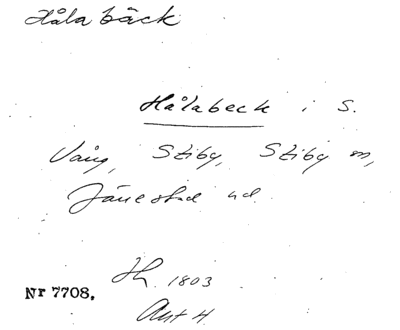 Håla bäck
Hålabeck i S.
Vång, Stiby, Stiby sn,
Järrestad hd.
Jh. 1803
Nr 7708.
Akt H.